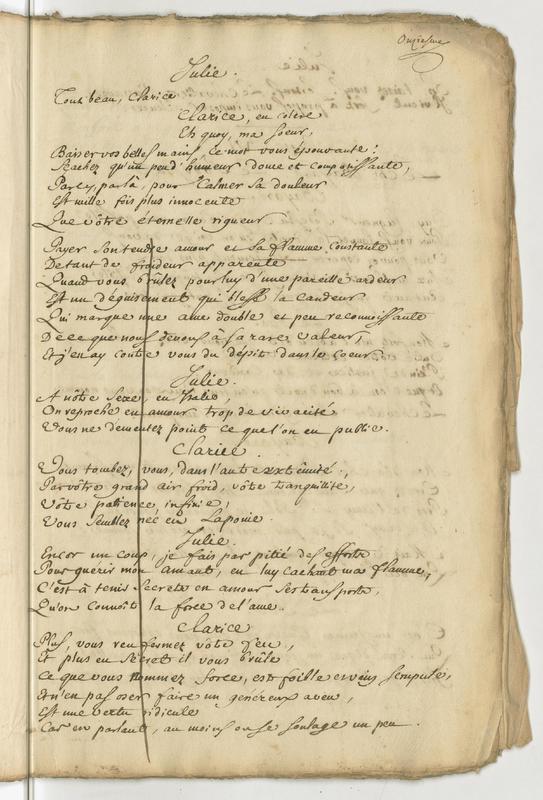 Onziesme
Julie.
Tout beau, Clarice
Clarice, en colère
Eh quoy, ma soeur,
Baiser vos belles mains, ce mot vous épouvante!
Scachez qu'un peu d'humeur douce et compatissante,
Parlez, parla, pour calmer sa douleur
Est mille fois plus innocente
Que vôtre éternelle rigueur.
Payer son tendre amour et sa flamme constante
De tant de froideur apparente
Quand vous brûlez pour luy d'une pareille ardeur
Est un déguisement qui blesse la candeur
Qui marque une ame double et peu reconnoissante
De ce que nous devons à sa rare valeur,
Et j'en ay contre vous du dépit dans le coeur.
Julie.
A nôtre sexe, en Italie,
On reproche en amour trop de vivacité
Vous ne dementez point ce que l'on en publie.
Clarice.
Vous tombez, vous, dans l'autre extrémité,
Par vôtre grand air froid, vôtre tranquillité,
Vôtre patience infinie,
Vous semblez née en Laponie.
Julie.
Encor un coup, je fais par pitié des efforts
Pour guérir mon amant, en luy cachant ma flamme,
C'est à tenir secrets en amour ses transports,
Qu'on connoît la force de l'ame.
Clarice
Plus, vous renfermez vôtre feu,
Et plus en secret il vous brûle
Ce que vous nommez force, est foible et vain scrupule,
Et n'en pas oser faire un généreux aveu,
Est une vertu ridicule
Car en parlant, au moins on se soulage un peu.